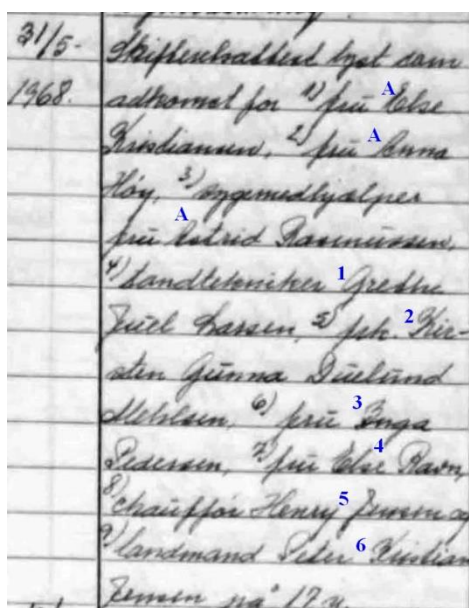 31/5- Skifteretsattest lyst som
1968. adkomst for 1) frü A Else
Kristiansen, 2) frü A Anna
Høy, 3) sygemedhjælper
A
frü Astrid Rasmüssen,
4) tandtekniker 1 Grethe
Juel Larsen, 5) frk. 2 Kir-
sten Günna Düelund
Mehlsen, 6) frü 3 Inga
Pedersen, 7) frü 4 Else Ravn,
8) chauffør Henry 5 Jensen og
9) landmand Peter 6 Kristian
Jensen på 17